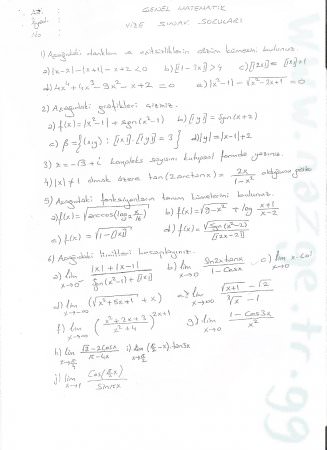 Adı:
Soyadı:
No
GENEL MATEMATİK
VİZE SINAV SORULARI
1) Aşağıdaki denklem ve eşitsizliklerin çözüm kümesini bulunuz
a) |x-2|-|x+1|-x+2<0 b) [|1-3x|]>4 c) [|2x|]=[|x|]+1
d) 4x⁴+4x³-9x²-x+2=0 e) |x²-1|-√(x²-2x+1)=0
2) Aşağıdaki grafikleri çiziniz.
a) f(x)=|x²-1|+sgn(x²-1) b) [|y|]=sgn(x+2)
c) β={(x,y): [|x|].[|y|]=3} d) |y|=|x-1|+2
3) z=-√3+i kompleks sayısını kutupsal formda yazınız.
4) |x|≠1 olmak üzere tan(2arctanx)=2x/(1-x²) olduğunu göster
5) Aşağıdaki fonksiyonların tanım kümelerini bulunuz.
a) f(x)=√(arccos(log₂ x/8)) b) f(x)=√(9-x²)+log (x+1)/(x-2)
c) f(x)=√(1-[|x|]) d) f(x)=√(sgn(x²-2))/[|2x-2|]
6) Aşağıdaki limitleri hesaplayınız.
a) lim x→0⁻ (|x|+|x-1|)/(sgn(x²-1)+[|x|]) b) lim x→0 (sin2x tanx)/(1-cosx) c) lim x→0 x.cot
d) lim x→-∞ (√(x²+5x+1)+x) e) lim x→1 (√(x+1)-√2)/(∛x-1)
f) lim x→∞ ((x²+2x+3)/(x²+4))^(2x+1) g) lim x→0 (1-cos3x)/x²
h) lim x→π/4 (√2-2cosx)/(π-4x) i) lim x→π/2 (π/2-x).tan3x
j) lim x→1 cos(π/2 x)/sinπx
www.matgeetr.gg